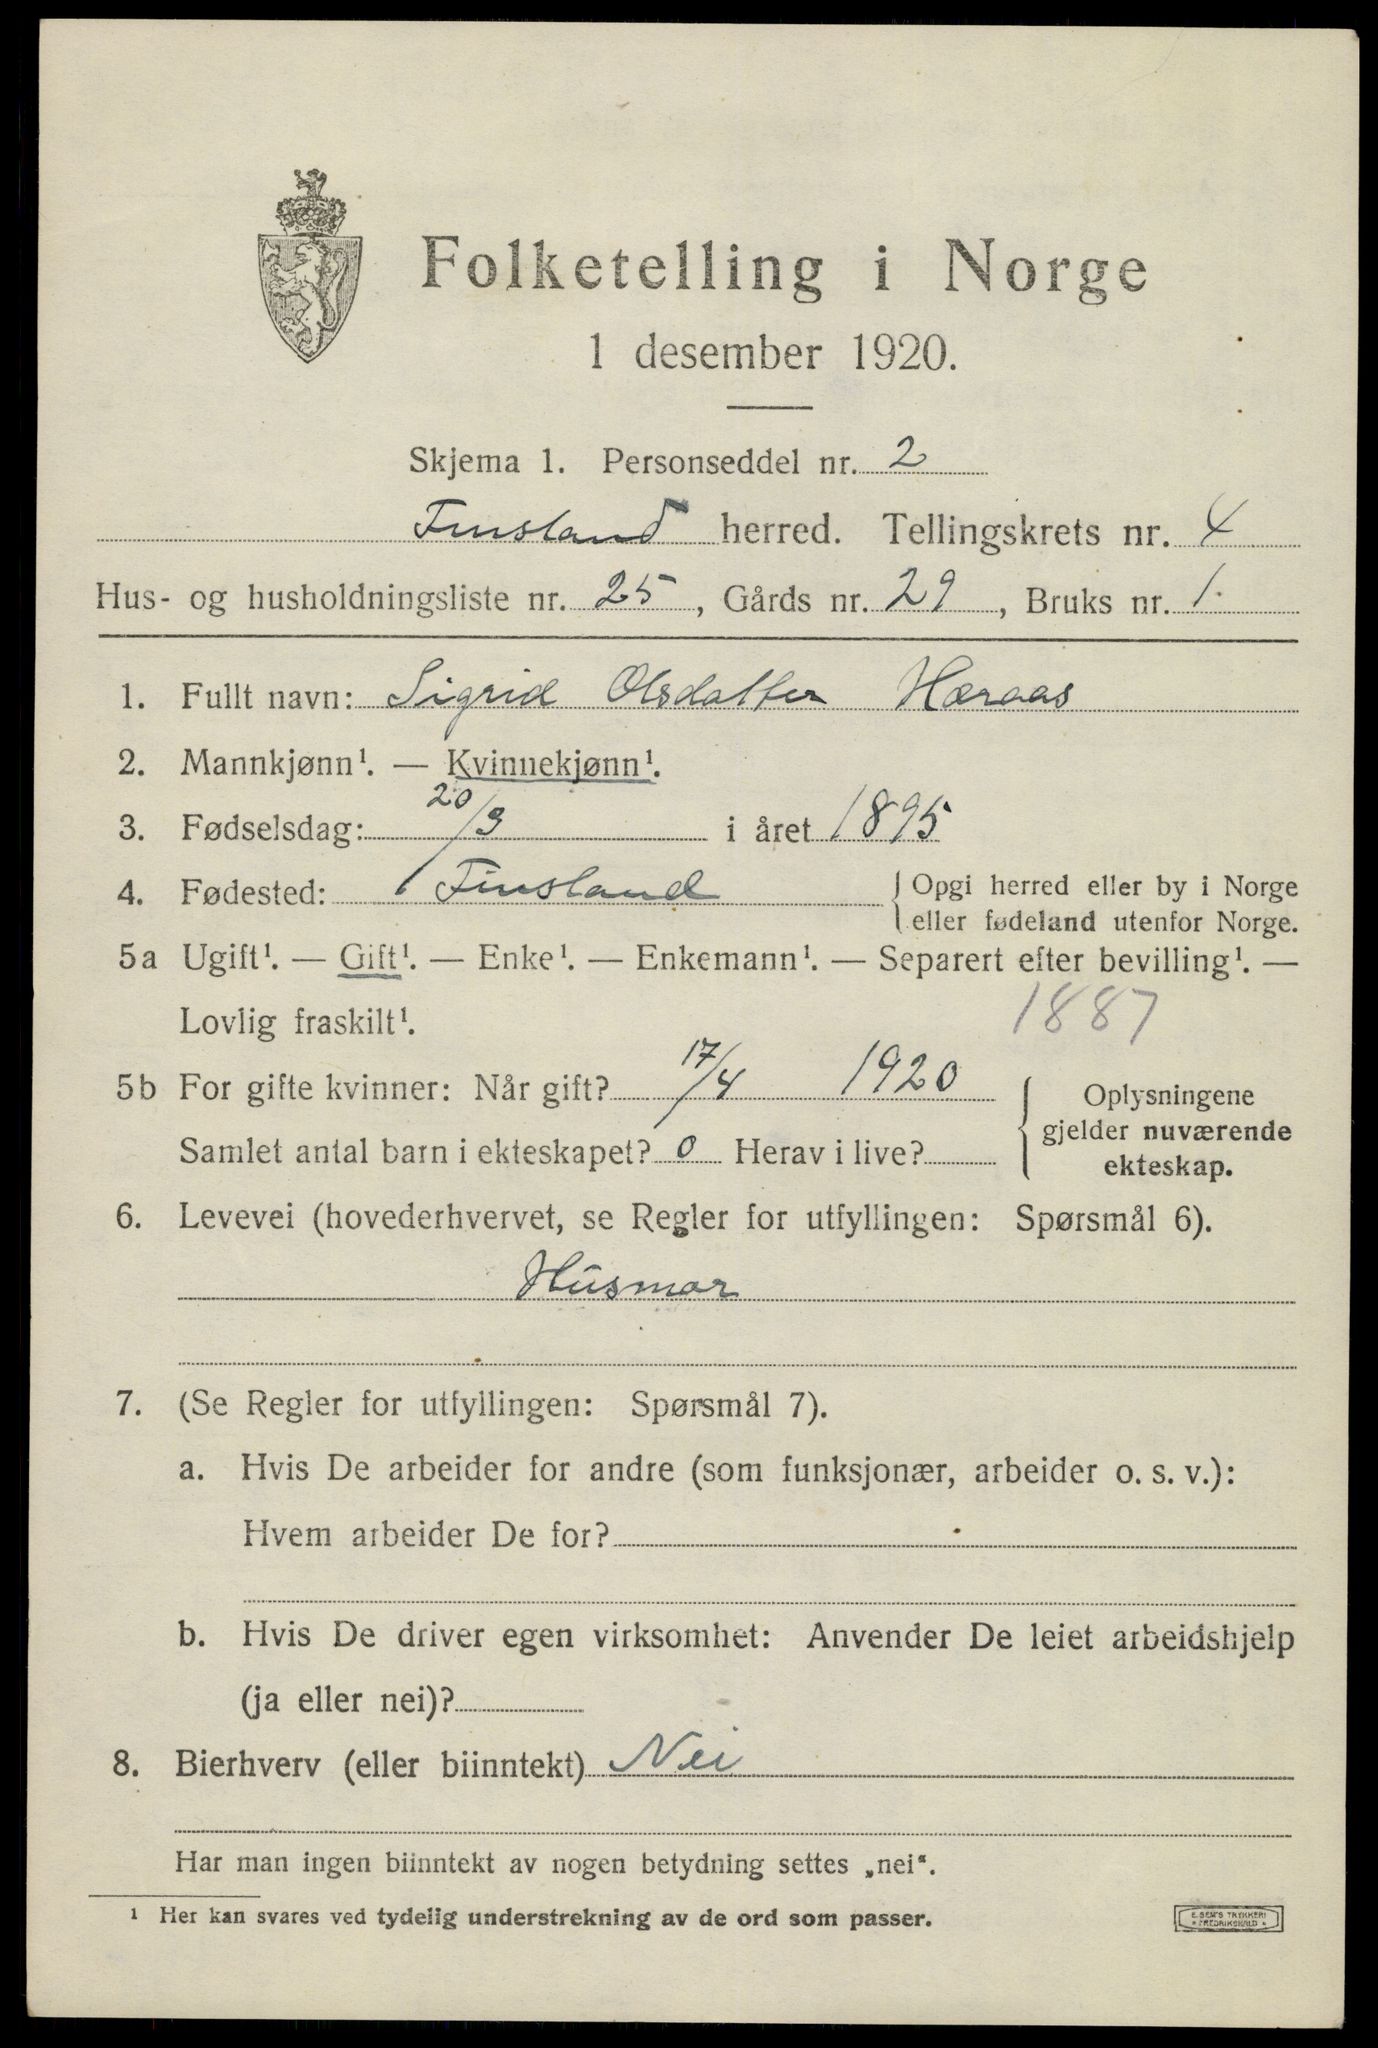 Folketelling i Norge
1 desember 1920.
Skjema 1. Personseddel nr. 2
Finsland herred. Tellingskrets nr. 4
Hus- og husholdningsliste nr. 25, Gårds nr. 29, Bruks nr. 1.
1. Fullt navn: Sigrid Olsdatter Høraas
2. Mannkjønn¹. — Kvinnekjønn¹.
3. Fødselsdag: 20/3 i året 1895
4. Fødested: Finsland { Opgi herred eller by i Norge
eller fødeland utenfor Norge.
5a Ugift¹. — Gift¹. — Enke¹. — Enkemann¹. — Separert efter bevilling¹. —
Lovlig fraskilt¹. 1887
5b For gifte kvinner: Når gift? 17/4 1920
Samlet antal barn i ekteskapet? 0 Herav i live?
{ Oplysningene
gjelder nuværende
ekteskap.
6. Levevei (hovederhvervet, se Regler for utfyllingen: Spørsmål 6).
Husmor
7. (Se Regler for utfyllingen: Spørsmål 7).
a. Hvis De arbeider for andre (som funksjonær, arbeider o. s. v.):
Hvem arbeider De for?
b. Hvis De driver egen virksomhet: Anvender De leiet arbeidshjelp
(ja eller nei)?
8. Bierhverv (eller biinntekt) Nei
Har man ingen biinntekt av nogen betydning settes „nei“.
¹ Her kan svares ved tydelig understrekning av de ord som passer.
E. SEM'S TRYKKERI
• FREDRIKSHALD •